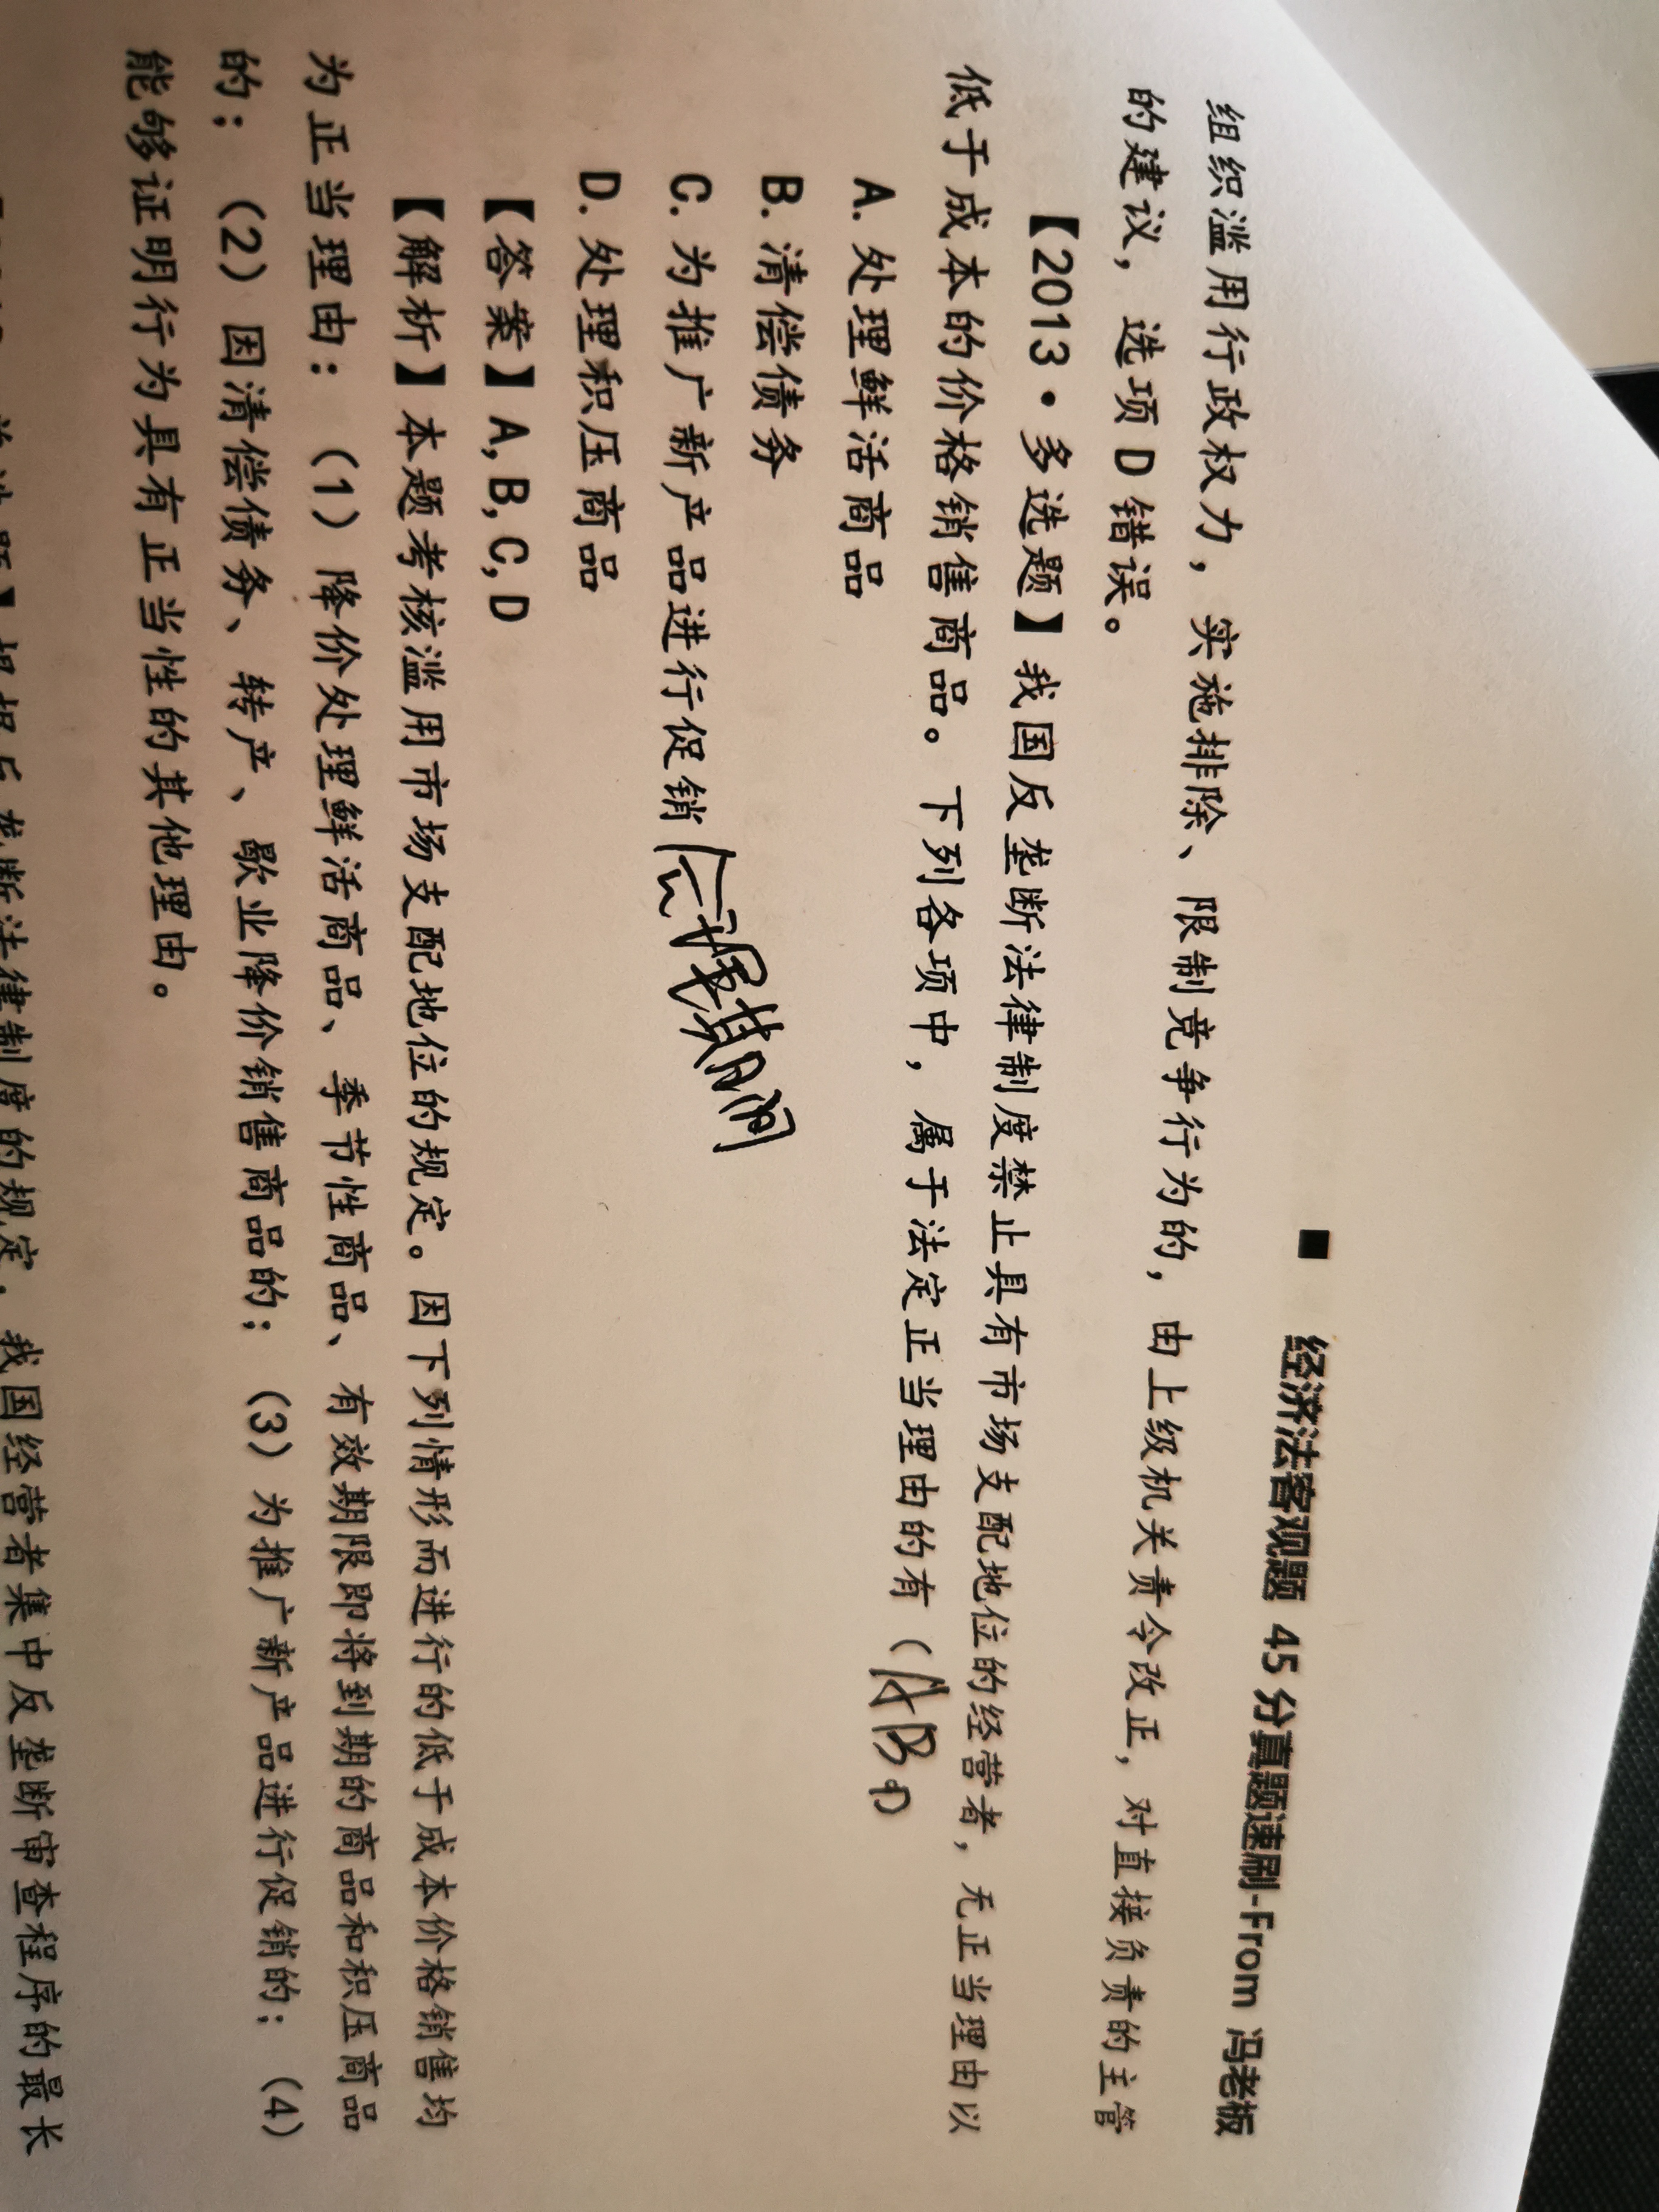 ■ 经济法客观题 45 分真题速刷-From 冯老板
组织滥用行政权力，实施排除、限制竞争行为的，由上级机关责令改正，对直接负责的主管
的建议，选项 D 错误。
【2013·多选题】我国反垄断法律制度禁止具有市场支配地位的经营者，无正当理由以
低于成本的价格销售商品。下列各项中，属于法定正当理由的有（ABD
A. 处理鲜活商品
B. 清偿债务
C. 为推广新产品进行促销
D. 处理积压商品
【答案】A, B, C, D
【解析】本题考核滥用市场支配地位的规定。因下列情形而进行的低于成本价格销售均
为正当理由：（1）降价处理鲜活商品、季节性商品、有效期限即将到期的商品和积压商品
的；（2）因清偿债务、转产、歇业降价销售商品的；（3）为推广新产品进行促销的；（4）
能够证明行为具有正当性的其他理由。
反垄断法律制度的规定，我国经营者集中反垄断审查程序的最长